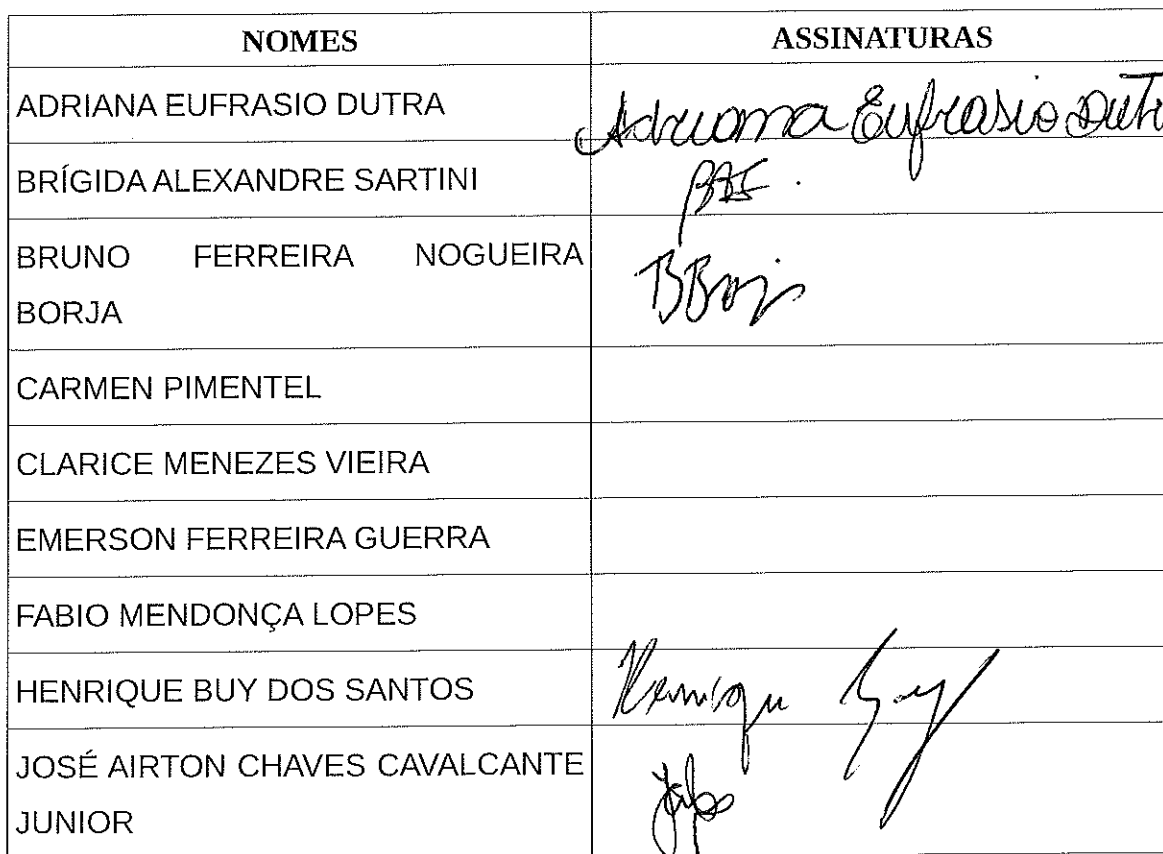 NOMES ASSINATURAS
ADRIANA EUFRASIO DUTRA Adriana Eufrasio Dutr
BRÍGIDA ALEXANDRE SARTINI
BRUNO FERREIRA NOGUEIRA
BORJA
CARMEN PIMENTEL
CLARICE MENEZES VIEIRA
EMERSON FERREIRA GUERRA
FABIO MENDONÇA LOPES
HENRIQUE BUY DOS SANTOS Henrique Buy
JOSÉ AIRTON CHAVES CAVALCANTE
JUNIOR